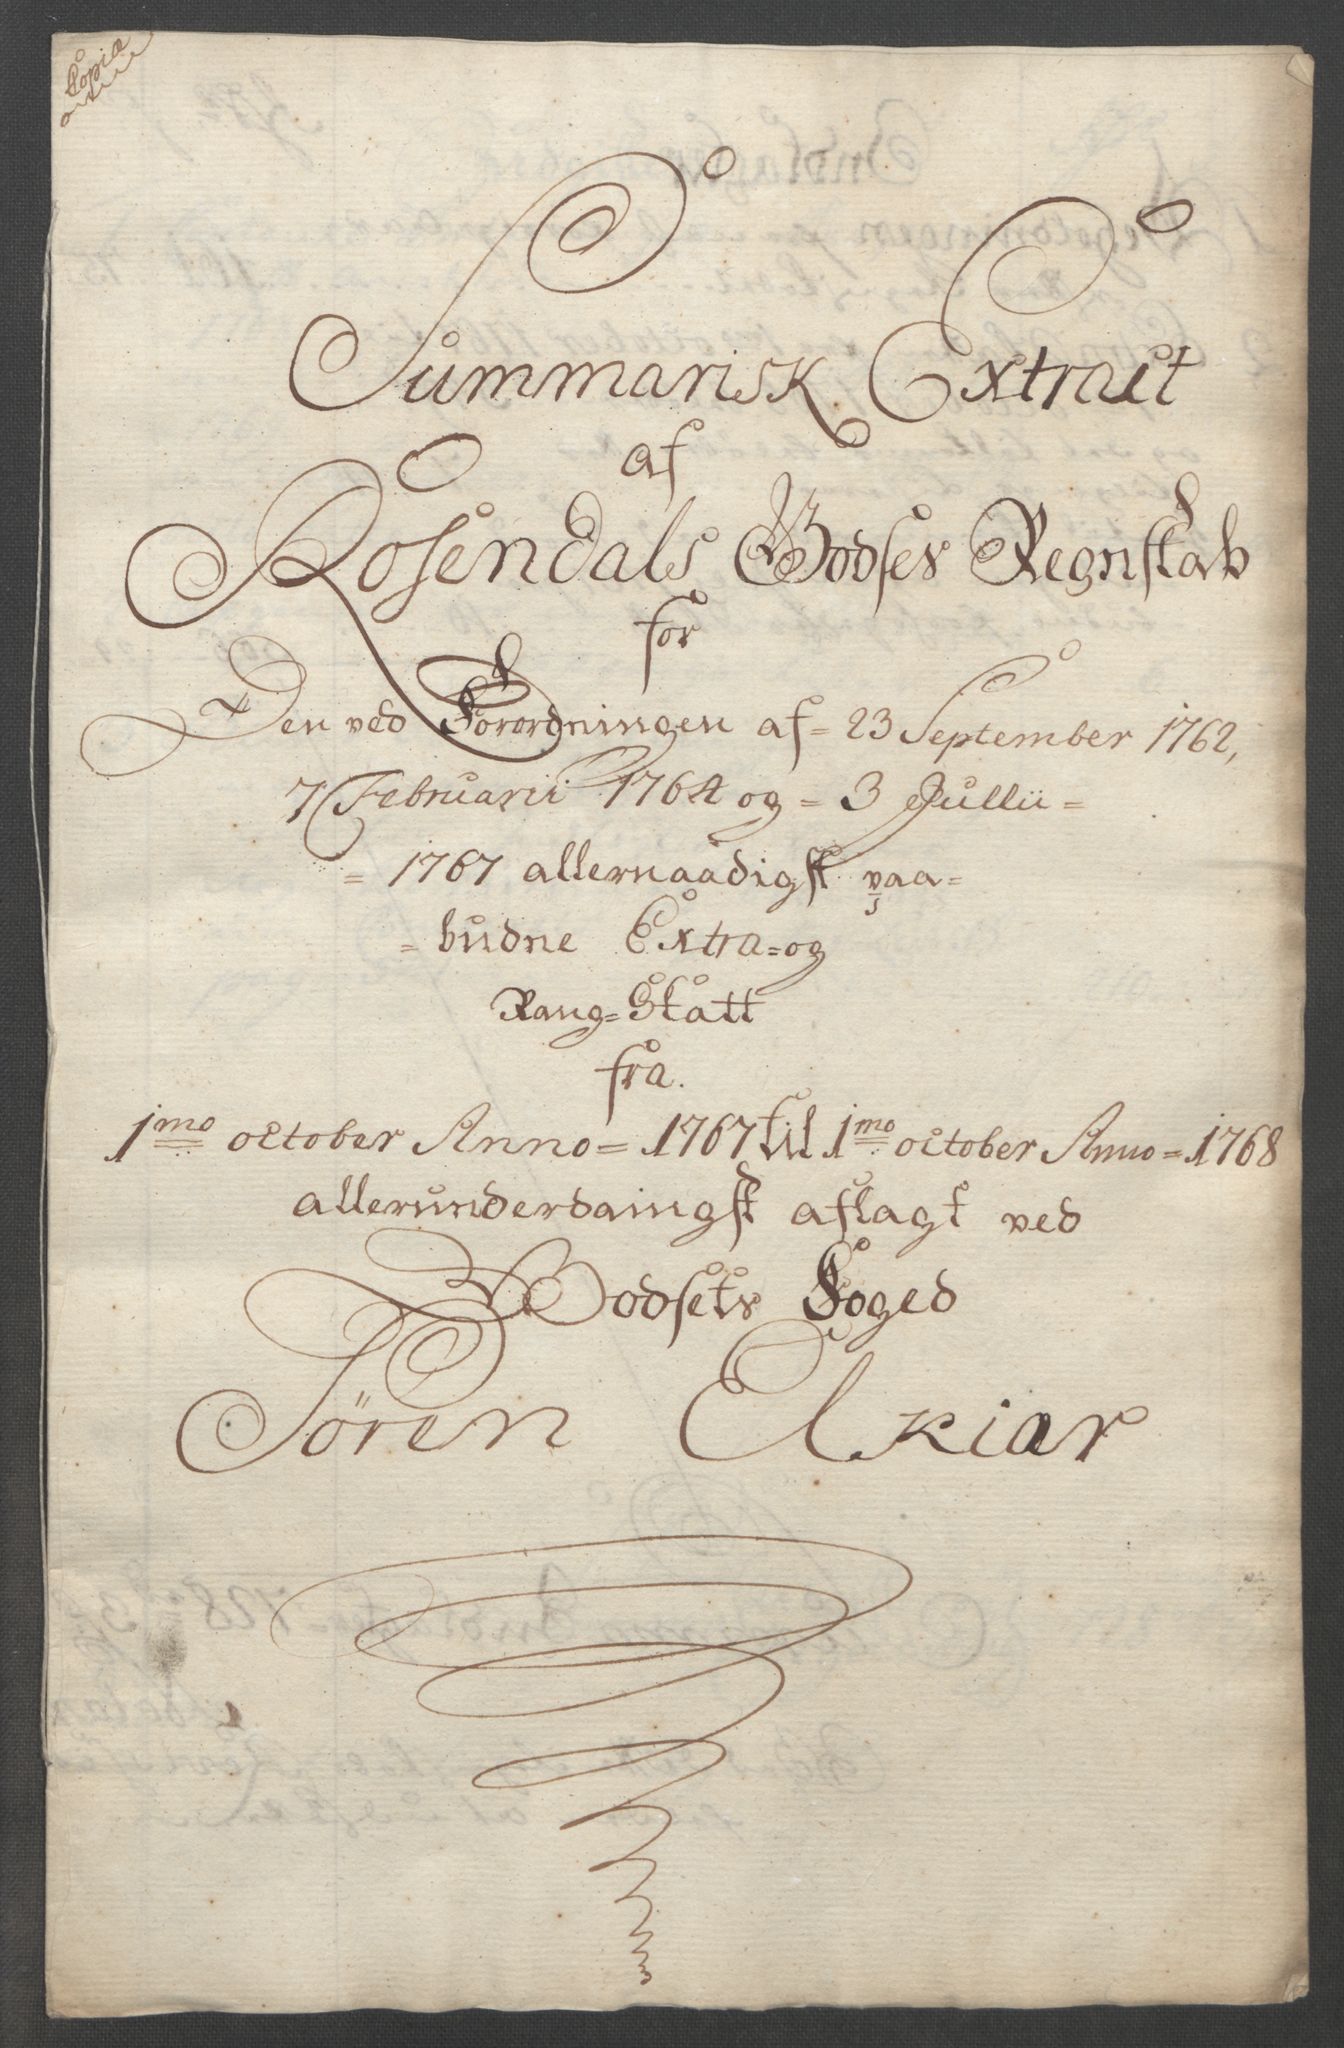 Copia
Summarisk Extract
af
Rosendals Godses Regnskab
for
Den ved Forordningen af= 23 September 1762,
7 Februarii 1764 og= 3 Jullii=
= 1767 allernaadigst paa=
= budne Extra=og
Rang=Skatt
fra.
1mo october Anno= 1767 til 1mo october Anno= 1768
allerunderdaingst aflagt ved
Godsets Foged
Sören Elkiar